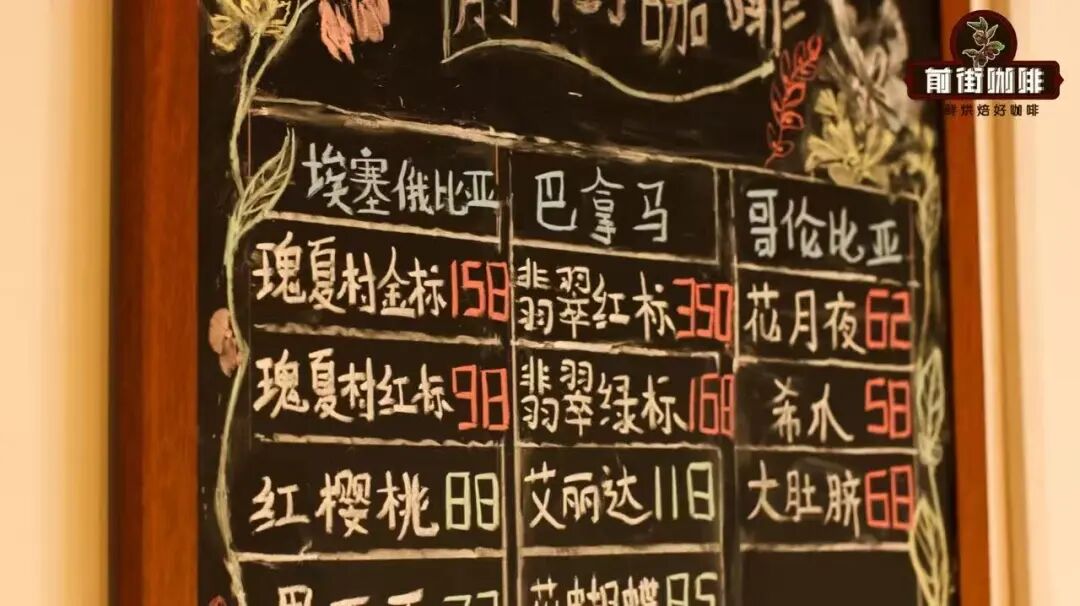 前街咖啡
前街咖啡
鲜烘焙好咖啡
埃塞俄比亚 巴拿马 哥伦比亚
瑰夏村金标158 翡翠红标350 花月夜62
瑰夏村红标98 翡翠绿标168 希水58
红樱桃88 艾丽达118 大肚脐68
花蝴蝶85